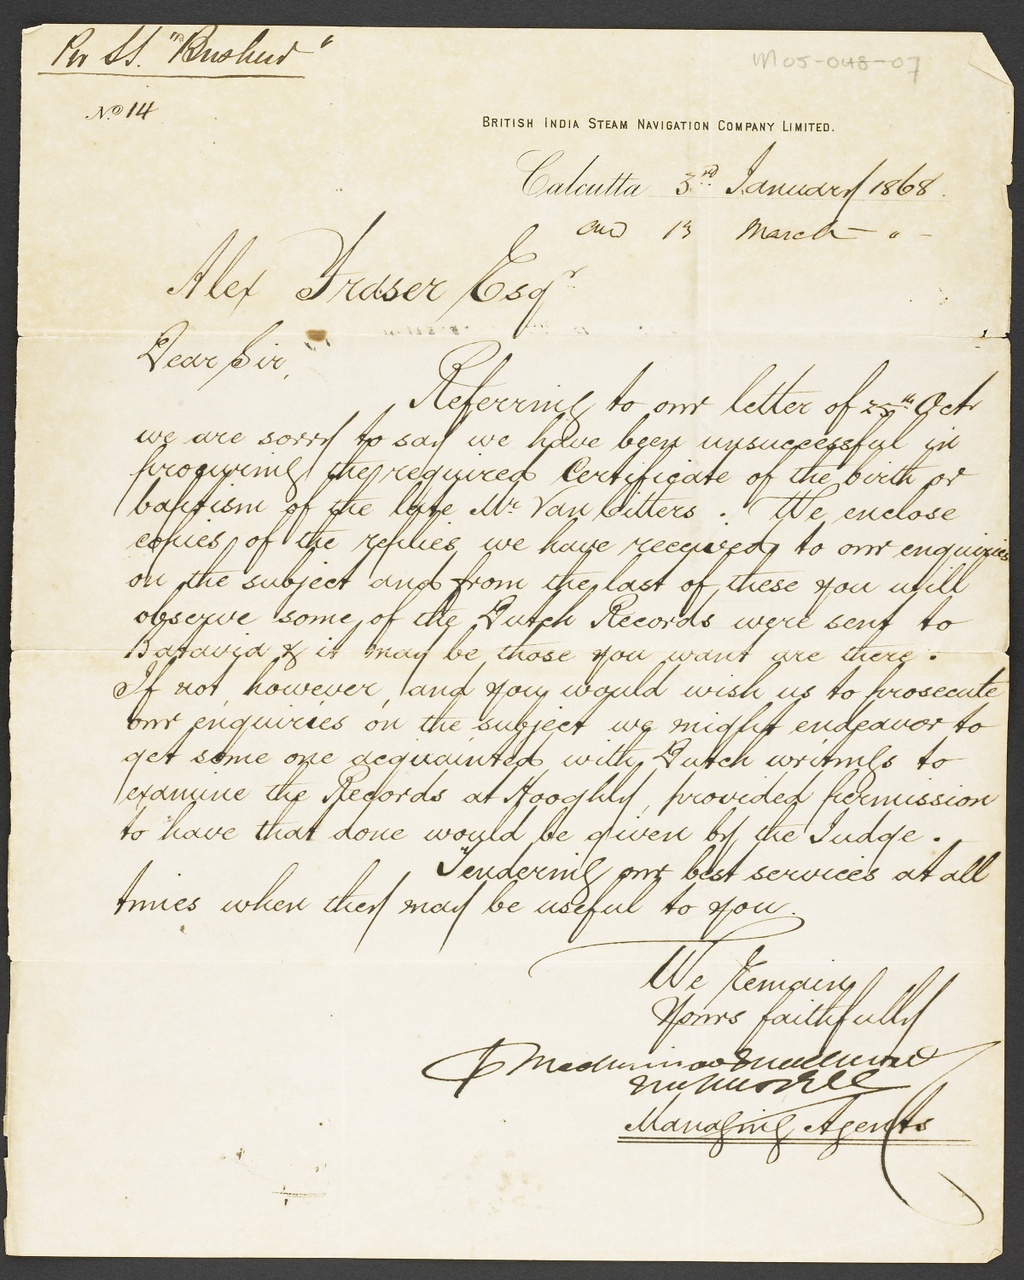 Per SS. "Busheer"
M05-048-07
No 14
BRITISH INDIA STEAM NAVIGATION COMPANY LIMITED.
Calcutta 3rd January 1868.
and 13 March " -
Alex Fraser Esqr
Dear Sir,
Referring to our letter of 25th Octr
we are sorry to say we have been unsuccessful in
procuring the required Certificate of the birth or
baptism of the late Mr Van Citters. We enclose
copies of the replies we have received to our enquiries
on the subject and from the last of these you will
observe some of the Dutch Records were sent to
Batavia & it may be those you want are there.
If not however, and you would wish us to prosecute
our enquiries on the subject we might endeavor to
get some one acquainted with Dutch writings to
examine the Records at Hooghly, provided permission
to have that done would be given by the Judge.
Tendering our best services at all
times when they may be useful to you.
We Remain
Yours faithfully
Managing Agents